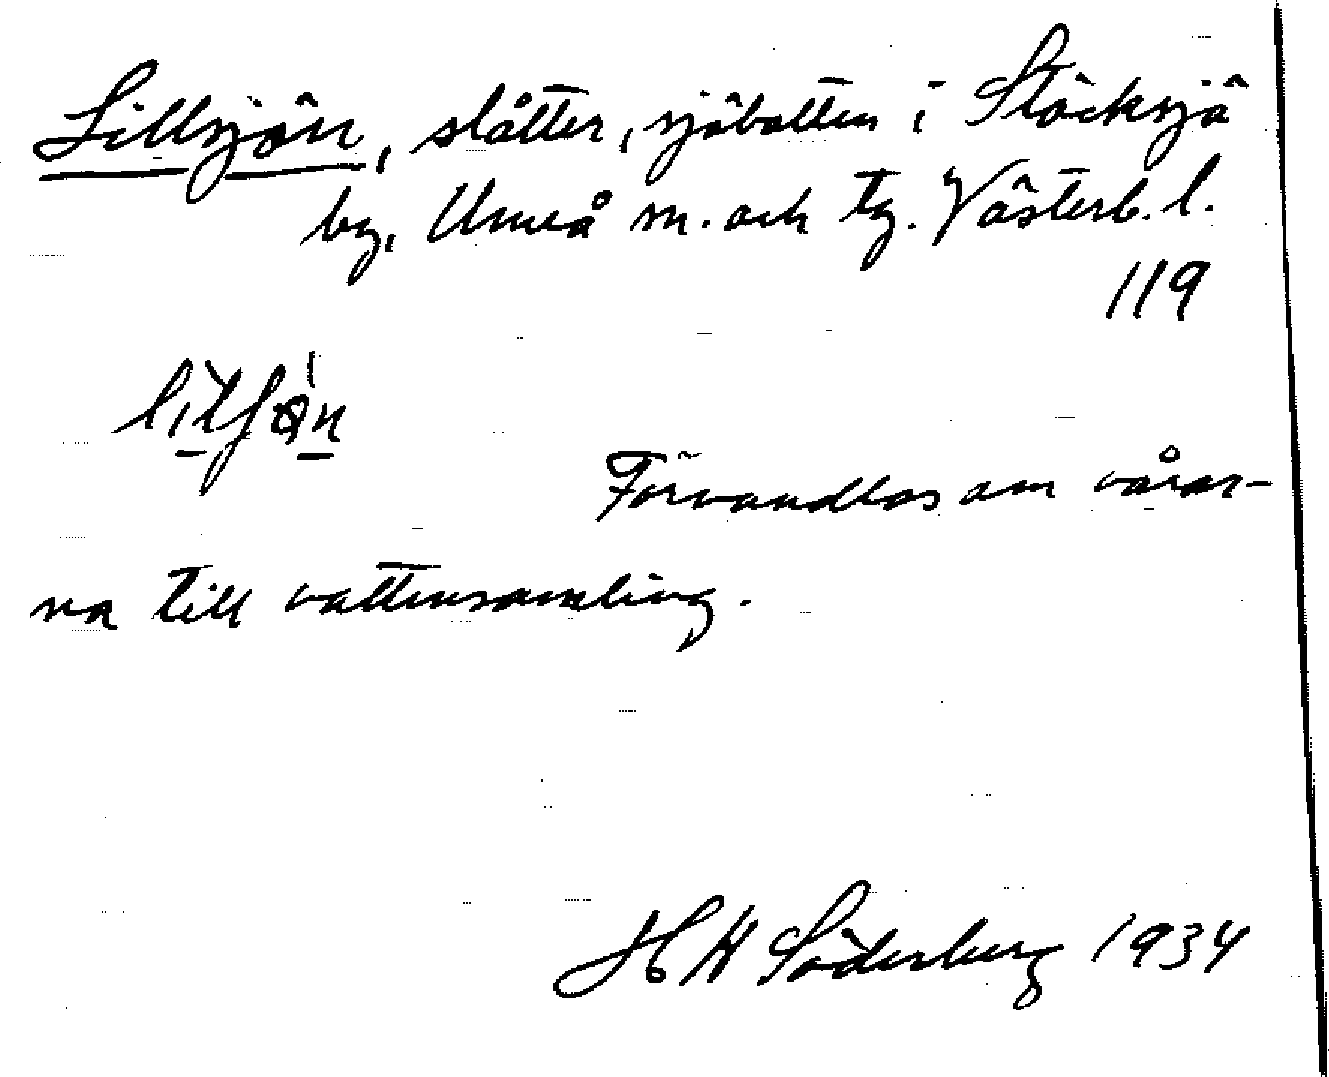 Lillsjön, slåtter, sjöbotten i Stöcksjö
by, Umeå sn. och tg. Västerb. l.
119
Förvandlas om vårar-
na till vattensamling.
H H Söderberg 1934